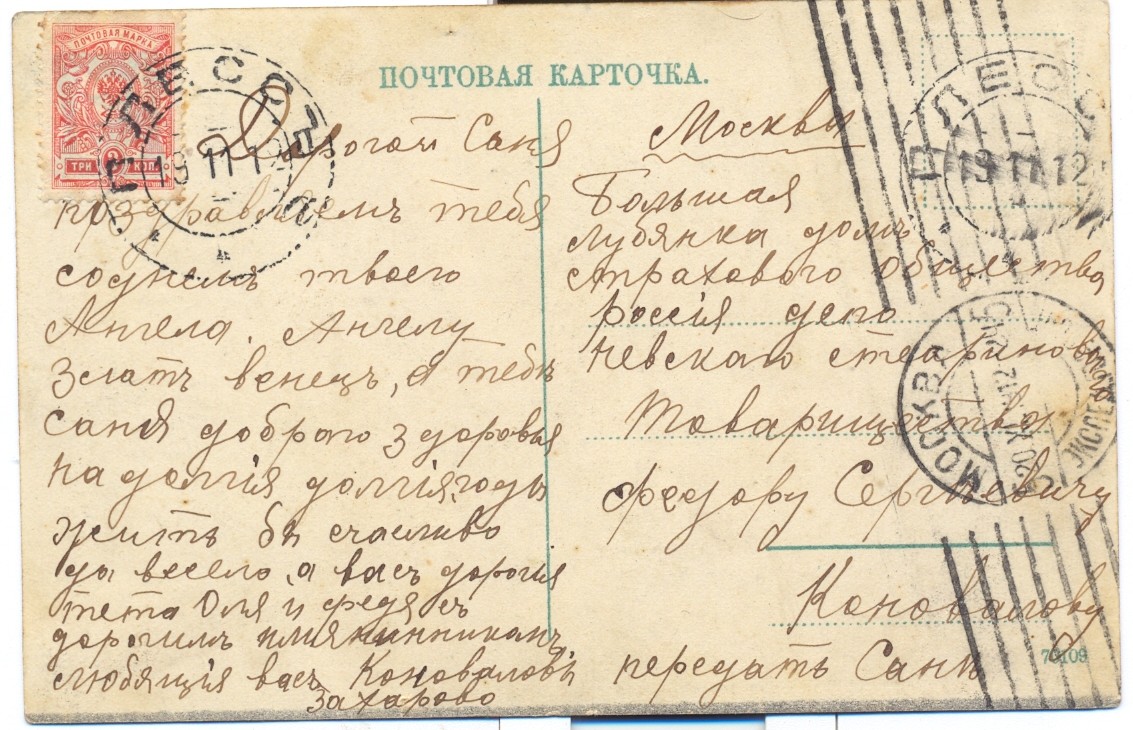 ПОЧТОВАЯ МАРКА
ТРИ КОП.
ПЛЕСОСЪ
19 11 12
ПОЧТОВАЯ КАРТОЧКА.
Дорогой Саня
поздравляемъ тебя
соднемъ твоего
Ангела. Ангелу
Златъ венецъ, а тебѣ
Саня доброго здоровья
на долгія долгія годы
Жить бы счасливо
да весело, а васъ дорогія
тета Оля и федя съ
дорогимъ имяниникамъ
любящія васъ Коноваловы
Захарово
Москвы
Большая
Лубянка домъ
страхового общества
россія депо
невскаго стеариноваго
Товарищества
Федору Сергѣевичу
Коновалову
передать Санѣ
19 11 12
МОСКВА